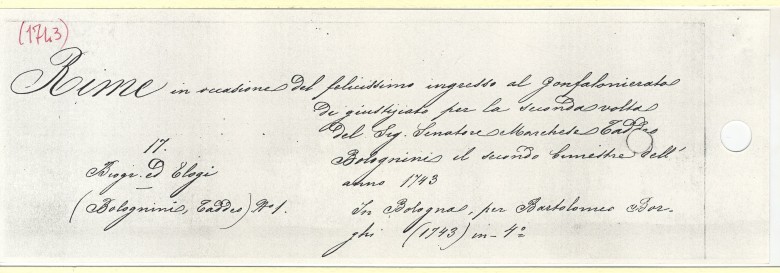 (1743)
Rime in occasione del felicissimo ingresso al Gonfalonierato
di giustizia per la seconda volta
del Sig. Senatore Marchese Taddeo
Bolognini il secondo bimestre dell'
anno 1743
17.
Biogr. ed Elogi
(Bolognini, Taddeo) Nº 1.
In Bologna, per Bartolomeo Bor-
ghi (1743) in-4º